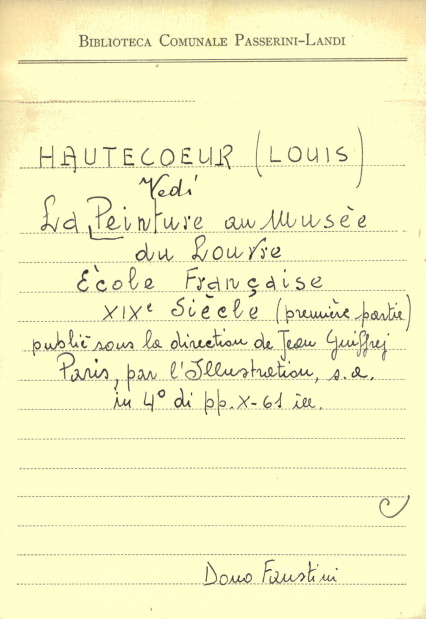 BIBLIOTECA COMUNALE PASSERINI-LANDI
HAUTECOEUR (LOUIS)
Vedi
La Peinture au Musèe
du Louvre
Ècole Française
XIXe Siècle (première partie)
publiè sous la direction de Jean Guiffrej
Paris, par l'Illustration, s.a.
in 4° di pp. X-61 ill.
Dono Faustini